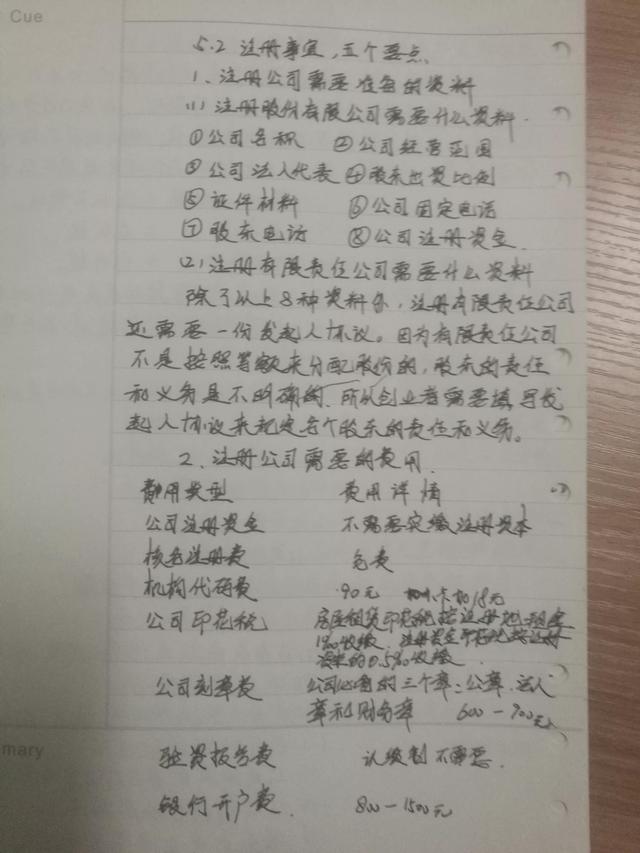 Cue
5.2 注册事宜，五个要点
1、注册公司需要准备的资料
(1) 注册股份有限公司需要什么资料
①公司名称 ②公司经营范围
③公司法人代表 ④股东出资比例
⑤证件材料 ⑥公司固定电话
⑦股东电话 ⑧公司注册资金
(2) 注册有限责任公司需要什么资料
除了以上8种资料外，注册有限责任公司
还需要一份发起人协议。因为有限责任公司
不是按照等额来分配股份的，股东的责任
和义务是不明确的，所以创业者需要填写发
起人协议来规定各个股东的责任和义务。
2、注册公司需要的费用
费用类型 费用详情
公司注册资金 不需要实缴注册资本
核名注册费 免费
机构代码费 90元 加18元
公司印花税 房屋租赁印花税按注册地租金
1‰收缴，注册资金印花税按注册
资金的0.5‰收缴
公司刻章费 公司必备的三个章：公章、法人
章和财务章 600-900元
mary
验资报告费 认缴制不需要
银行开户费 800-1500元